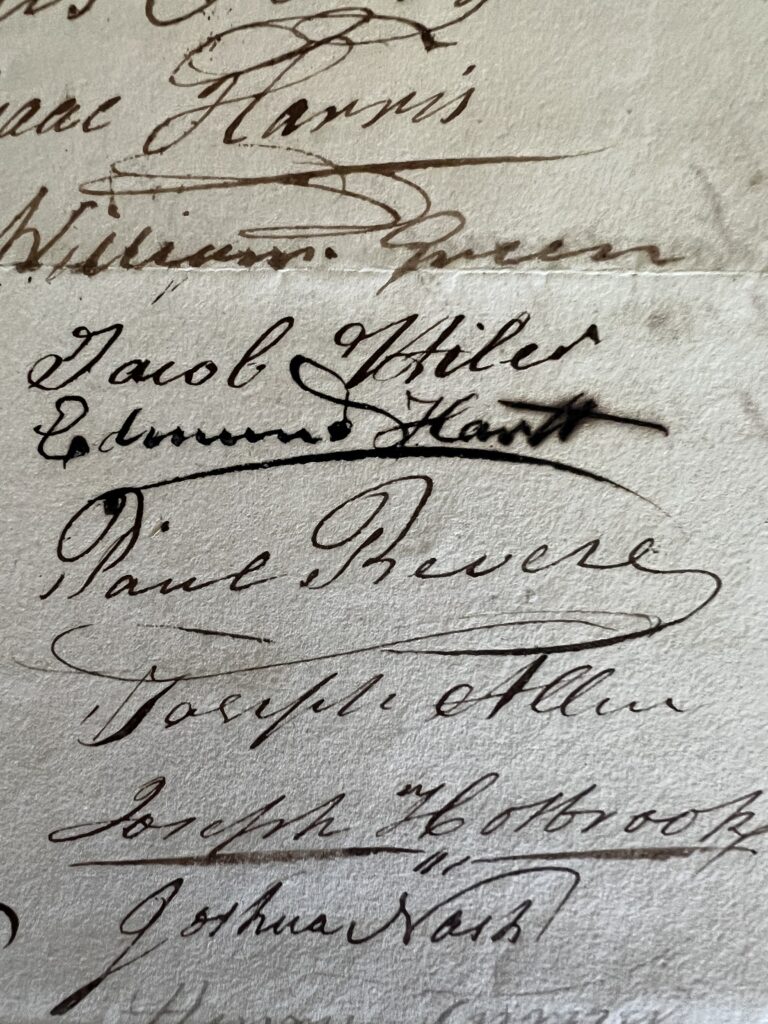 Harris
William Green
Jacob Hiler
Edmund Hartt
Paul Revere
Joseph Allen
Joseph Holbrook
Joshua Nash